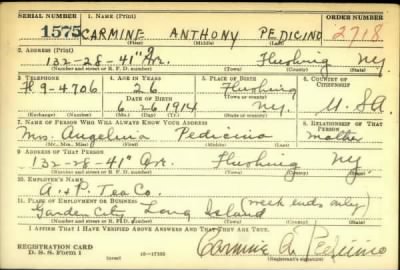 SERIAL NUMBER 1. NAME (Print) ORDER NUMBER
1575 CARMINE ANTHONY PEDICINO 2718
(First) (Middle) (Last)
2. ADDRESS (Print)
132-28-41st Ave. Flushing NY.
(Number and street or R. F. D. number) (Town) (County) (State)
3. TELEPHONE 4. AGE IN YEARS 5. PLACE OF BIRTH 6. COUNTRY OF CITIZENSHIP
Fl 9-4706 26 Flushing
DATE OF BIRTH (Town or county)
6 26 1914 NY. U.S.A.
(Exchange) (Number) (Mo.) (Day) (Yr.) (State or country)
7. NAME OF PERSON WHO WILL ALWAYS KNOW YOUR ADDRESS 8. RELATIONSHIP OF THAT PERSON
Mrs. Angelina Pedicino mother
(Mr., Mrs., Miss) (First) (Middle) (Last)
9. ADDRESS OF THAT PERSON
132-28-41st Ave. Flushing NY.
(Number and street or R. F. D. number) (Town) (County) (State)
10. EMPLOYER'S NAME
A.&P. Tea Co.
11. PLACE OF EMPLOYMENT OR BUSINESS (week ends only)
Garden City Long Island
(Number and street or R. F. D. number) (Town) (County) (State)
I AFFIRM THAT I HAVE VERIFIED ABOVE ANSWERS AND THAT THEY ARE TRUE.
REGISTRATION CARD
D. S. S. FORM 1 (over) 16-17105 Carmine A. Pedicino
(Registrant's signature)